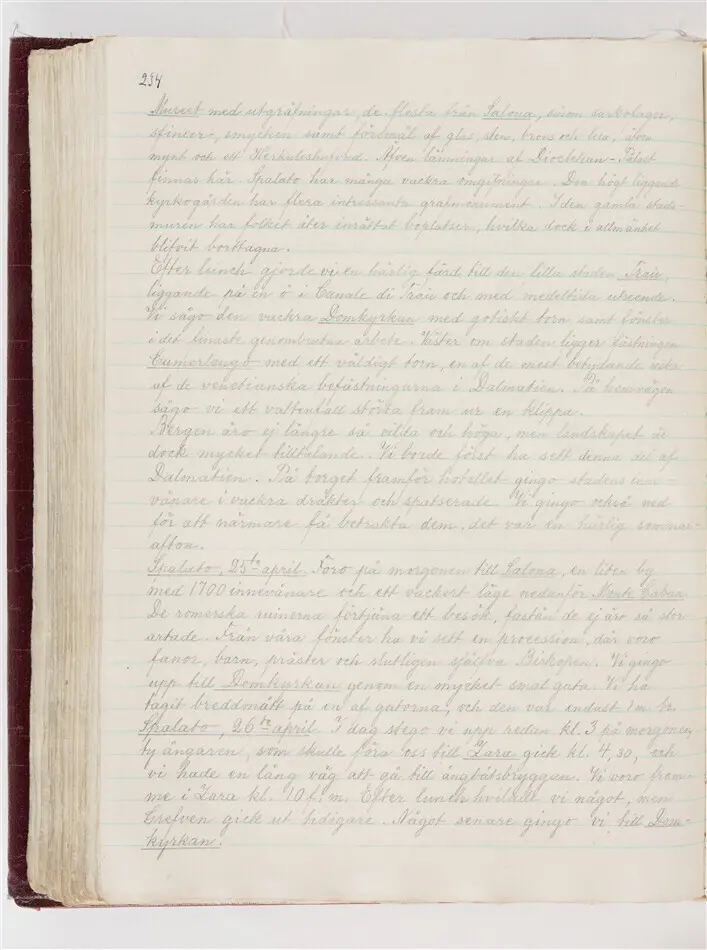 234
Museet med utgräfningar, de flesta från Salona, såsom sarkofager,
sfinxer, smycken samt föremål af glas, sten, brons och lera, även
mynt och ett Herkuleshufvud. Äfven lämningar af Diocletian-Palatset
finnas här. Spalato har många vackra omgifningar. Den högt liggande
kyrkogården har flera intressanta grafmonument. I den gamla stads-
muren har folket åter inrättat boplatser, hvilka dock i allmänhet
blifvit borttagna.
Efter lunch gjorde vi en härlig färd till den lilla staden Trau,
liggande på en ö i Canale di Trau och med medeltida utseende.
Vi sågo den vackra Domkyrkan med gotiskt torn samt fönster
i det finaste genombrutna arbete. Väster om staden ligger fästningen
Camerlengo med ett väldigt torn, en af de mest betydande
af de venetianska befästningarna i Dalmatien. På hemvägen
sågo vi ett vattenfall störta fram ur en klippa.
Bergen äro ej längre så vilda och höga, men landskapet är
dock mycket tilltalande. Vi borde först ha sett denna del af
Dalmatien. På torget framför hotellet gingo stadens inne-
vånare i vackra dräkter och spatserade. Vi gingo också ned
för att närmare få betrakta dem, det var en härlig sommar-
afton.
Spalato, 25te april. Foro på morgonen till Salona, en liten by
med 1700 innevånare och ett vackert läge nedanför Monte Caban.
De romerska ruinerna förtjäna ett besök, fastän de ej äro så stor-
artade. Från våra fönster ha vi sett en procession, där voro
fanor, barn, präster och slutligen själfva Biskopen. Vi gingo
upp till Domkyrkan genom en mycket smal gata. Vi ha
tagit breddmått på en af gatorna, och den var endast 1 m. br.
Spalato, 26te april. I dag stego vi upp redan kl. 3 på morgonen,
ty ångaren, som skulle föra oss till Zara gick kl. 4,30, och
vi hade en lång väg att gå till ångbåtsbryggan. Vi voro fram-
me i Zara kl. 10 f. m. Efter lunch hvilade vi något, men
Grefven gick ut tidigare. Något senare gingo vi till Dom-
kyrkan.